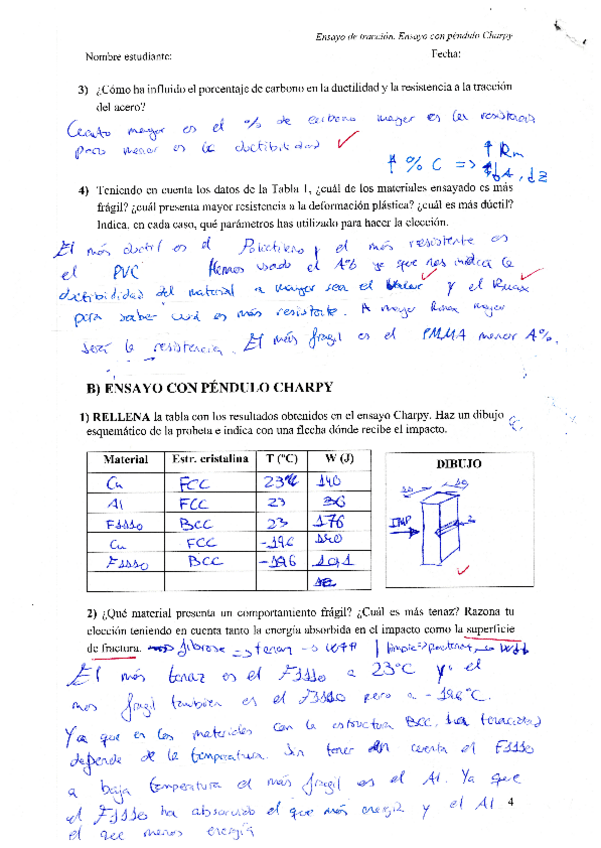 Ensayo de tracción. Ensayo con péndulo Charpy
Nombre estudiante: Fecha:
3) ¿Cómo ha influido el porcentaje de carbono en la ductilidad y la resistencia a la tracción
del acero?
Cuanto mayor es el % de carbono mayor es la resistencia
pero menor es la ductibilidad
↑ % C => ↑ Rm
↓A, ↓Z
4) Teniendo en cuenta los datos de la Tabla 1, ¿cuál de los materiales ensayado es más
frágil? ¿cuál presenta mayor resistencia a la deformación plástica? ¿cuál es más dúctil?
Indica, en cada caso, qué parámetros has utilizado para hacer la elección.
El más ductil es el Polietileno y el más resistente es
el PVC Hemos usado el A% ya que nos indica la
ductibilidad del material a mayor sea el valor y el Rmax
para saber cual es más resistente. A mayor Rmax mayor
será la resistencia. El más fragil es el PMMA menor A%.
B) ENSAYO CON PÉNDULO CHARPY
1) RELLENA la tabla con los resultados obtenidos en el ensayo Charpy. Haz un dibujo
esquemático de la probeta e indica con una flecha dónde recibe el impacto.
Material Estr. cristalina T (ºC) W (J) DIBUJO
Cu FCC 23 140
Al FCC 23 36
F1110 BCC 23 176
Cu FCC -196
F1110 BCC -196
10 10
IMP 2
2) ¿Qué material presenta un comportamiento frágil? ¿Cuál es más tenaz? Razona tu
elección teniendo en cuenta tanto la energía absorbida en el impacto como la superficie
de fractura. fibrosa => tenaz
El más tenaz es el F1110 a 23ºC y el
mas fragil también es el F1110 pero a -196ºC.
Ya que en los materiales con la estructura BCC, la tenacidad
depende de la temperatura. Sin tener en cuenta el F1110
a baja temperatura el más fragil es el Al. Ya que
el F1110 ha absorvido el que más energía y el Al
el que menos energía
4